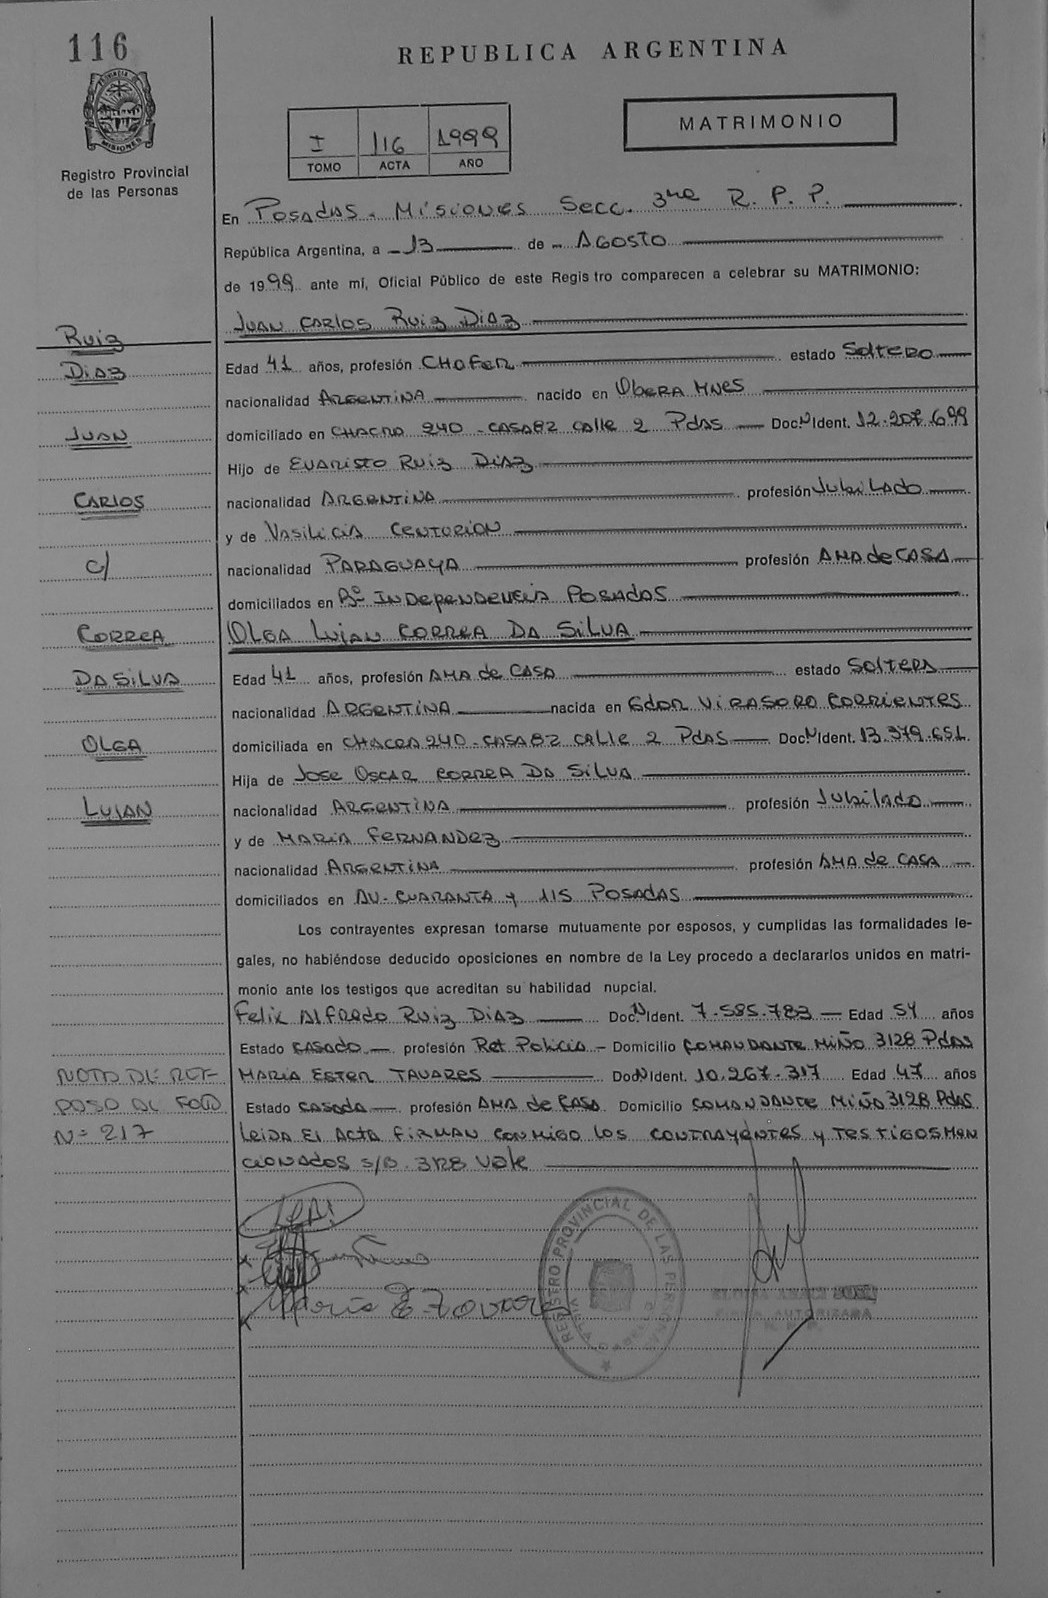 116
REPUBLICA ARGENTINA
PROVINCIA DE MISIONES
Registro Provincial
de las Personas
I 116 1999
TOMO ACTA AÑO
MATRIMONIO
En Posadas. Misiones Secc. 3ra R. P. P.
República Argentina, a 13 de Agosto
de 1999 ante mí, Oficial Público de este Registro comparecen a celebrar su MATRIMONIO:
Juan Carlos Ruiz Diaz
Edad 41 años, profesión Chofer estado Soltero
nacionalidad Argentina nacido en Obera Mnes
domiciliado en Chacra 240 - casa 82 calle 2 Pdas Doc. N Ident. 12.207.699
Hijo de Evaristo Ruiz Diaz
nacionalidad Argentina profesión Jubilado
y de Vasilicia Centurion
nacionalidad Paraguaya profesión Ama de casa
domiciliados en Bº Independencia Posadas
Olga Lujan Correa Da Silva
Edad 41 años, profesión Ama de casa estado Soltera
nacionalidad Argentina nacida en Gdor Virasoro Corrientes
domiciliada en Chacra 240 - casa 82 calle 2 Pdas Doc. N Ident. 13.379.651
Hija de Jose Oscar Correa Da Silva
nacionalidad Argentina profesión Jubilado
y de Maria Fernandez
nacionalidad Argentina profesión Ama de casa
domiciliados en Av. Cuaranta y 115 Posadas
Los contrayentes expresan tomarse mutuamente por esposos, y cumplidas las formalidades le-
gales, no habiéndose deducido oposiciones en nombre de la Ley procedo a declararlos unidos en matri-
monio ante los testigos que acreditan su habilidad nupcial.
Felix Alfredo Ruiz Diaz Doc. N Ident. 7.585.783 Edad 54 años
Estado casado profesión Ret Policia - Domicilio Comandante Miño 3128 Pdas
Maria Ester Tavares Doc N Ident. 10.267.317 Edad 47 años
Estado casada profesión Ama de casa Domicilio Comandante Miño 3128 Pdas
Leida el acta firman conmigo los contrayentes y testigos men
cionados s/B. 3128 Vale
Ruiz
Diaz
Juan
Carlos
c/
Correa
Da Silva
Olga
Lujan
Nota de Ref
Poso al Folio
Nº 217
Maria E Tavares
REGISTRO PROVINCIAL DE LAS PERSONAS
FIRMA AUTORIZADA